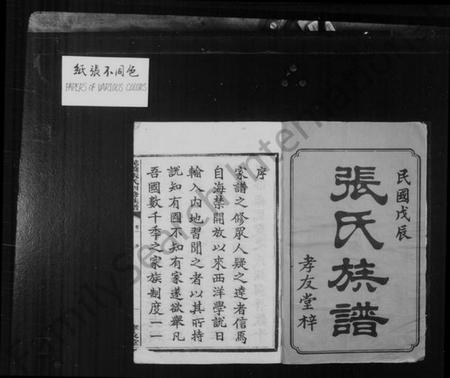 紙張不同色
PAPERS OF VARIOUS COLORS
民國戊辰
張氏族譜
孝友堂梓
序
家譜之修眾人疑之達者信焉
自海禁開放以來西洋學說日
輸入內地習聞之者以其所持
說知有國不知有家遂欲舉凡
吾國數千年之家族制度一一